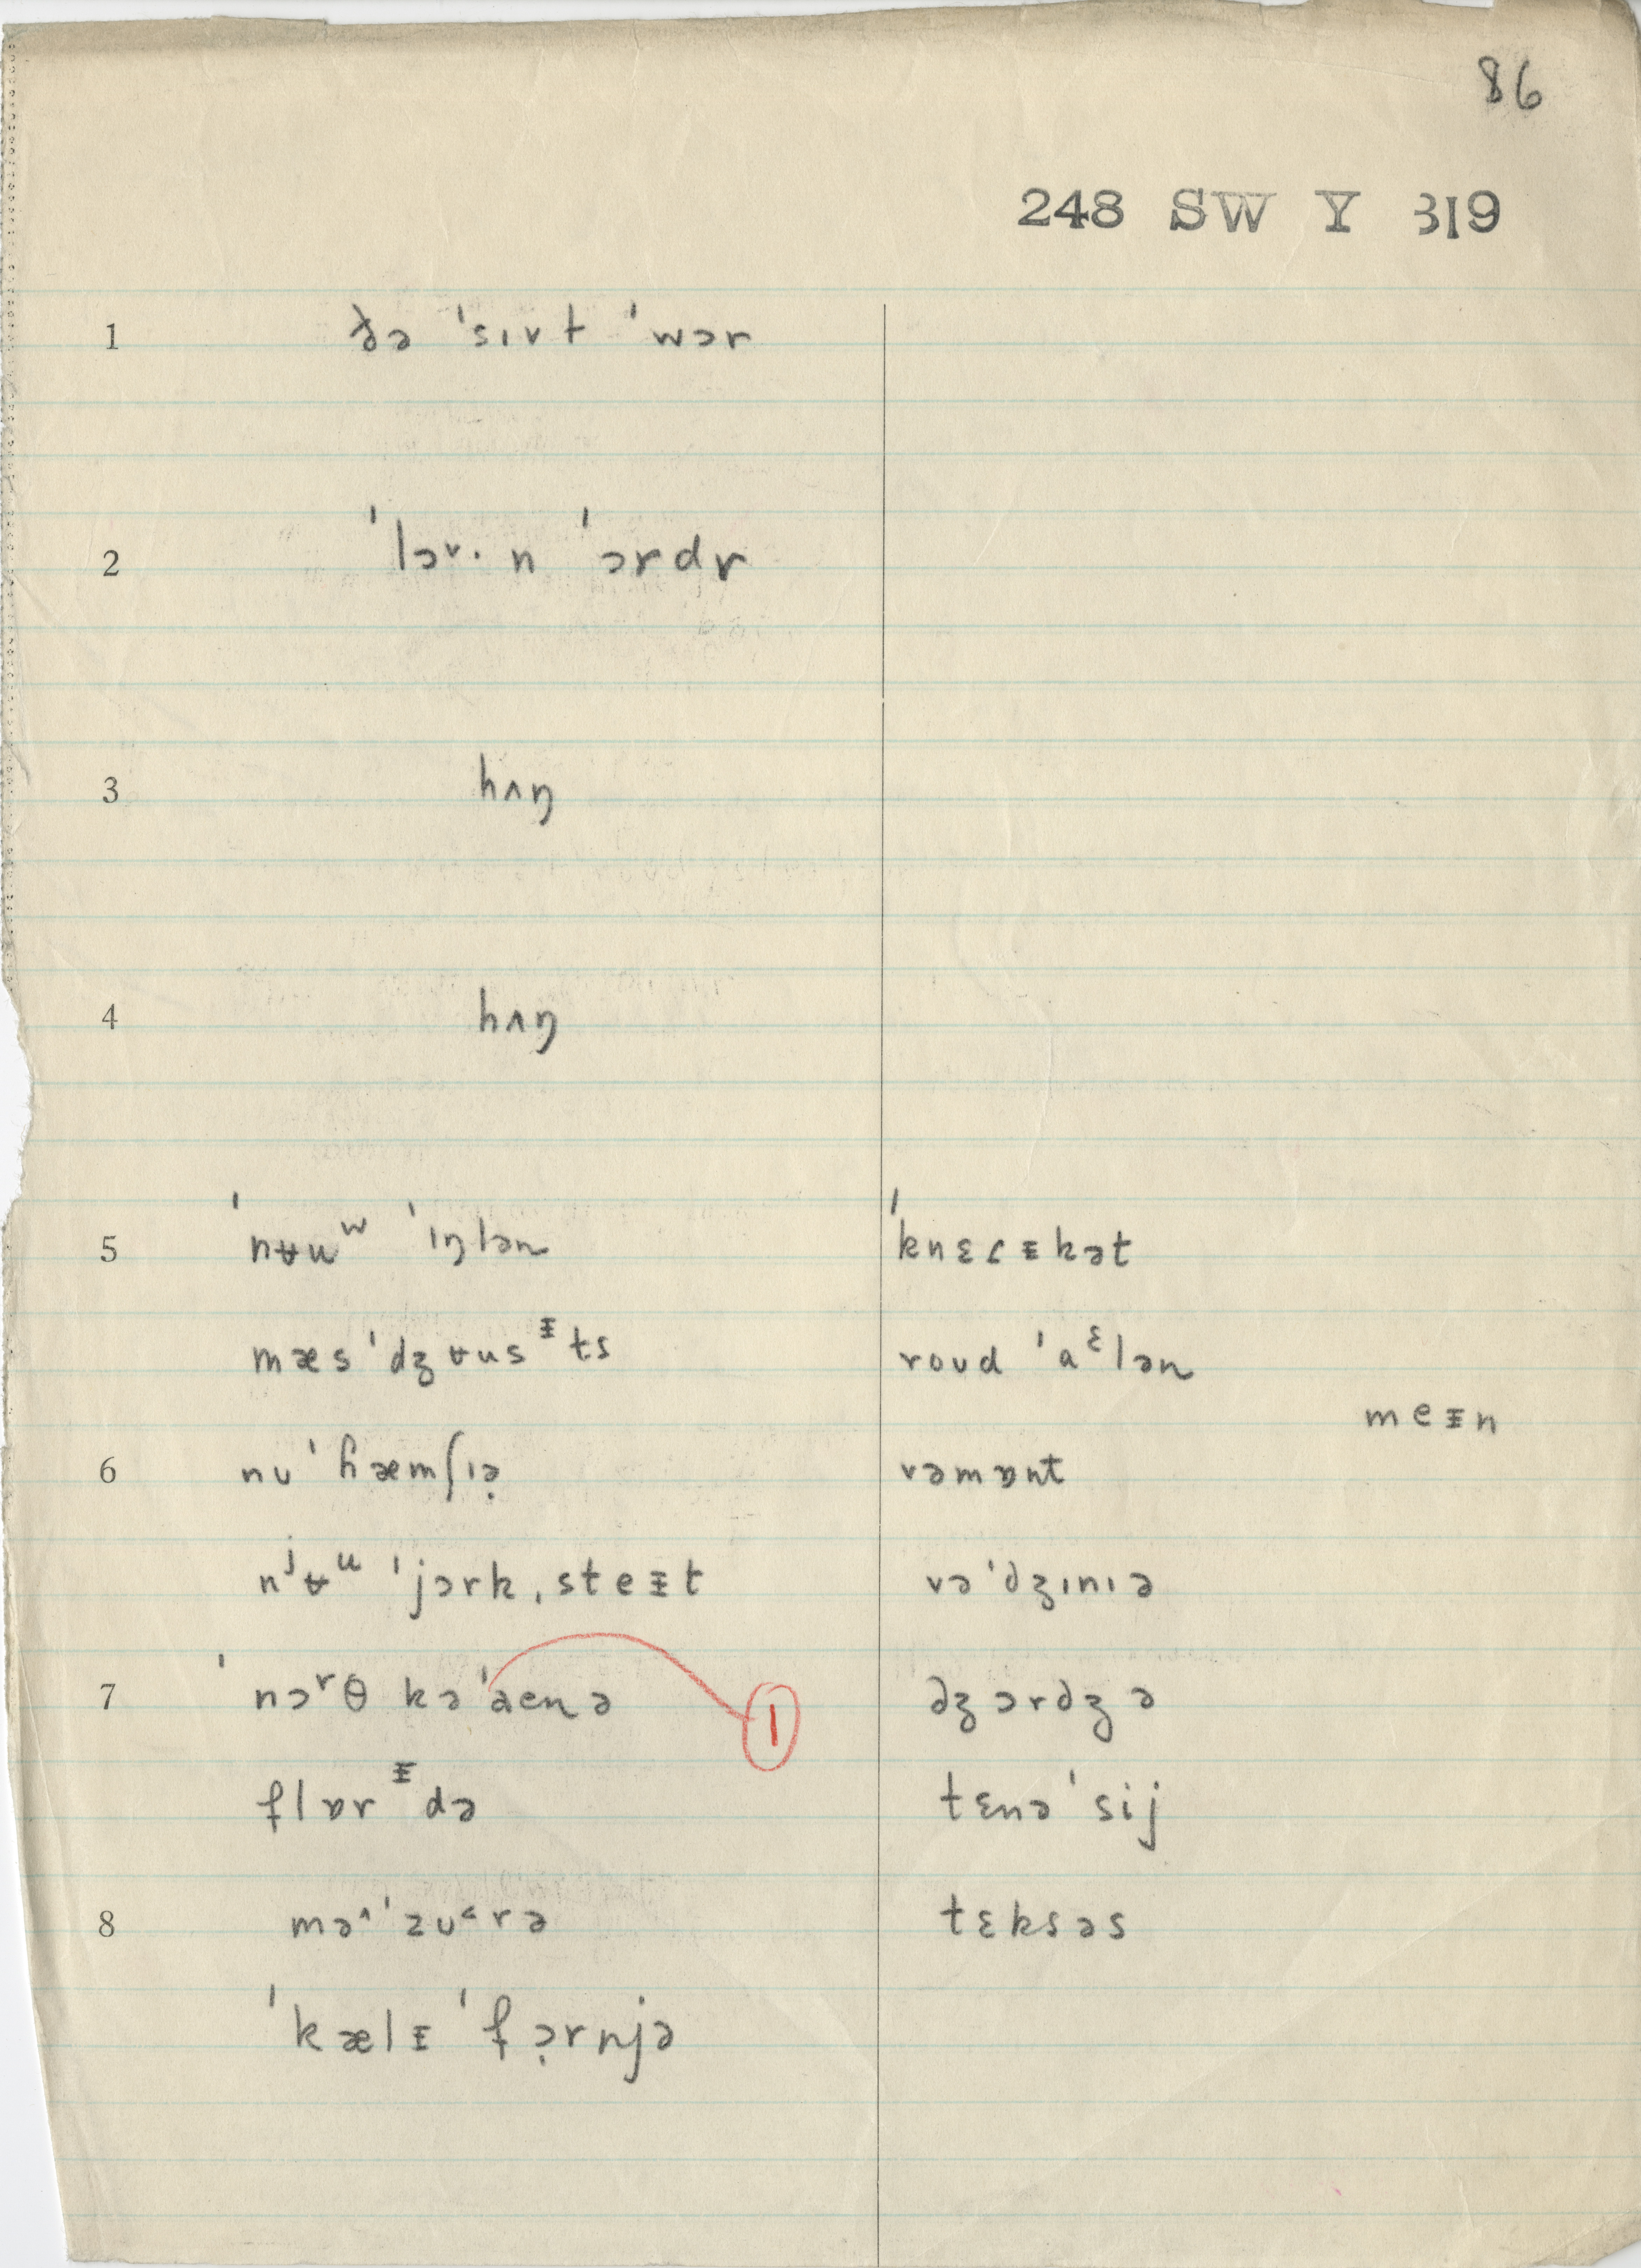 86
248 SW Y 319
1 ðə ˈsɪvt ˈwɔr
2 ˈlɔᵛ· n ˈɔrdr
3 hʌŋ
4 hʌŋ
5 ˈnʉuʷ ˈɪŋlən ˈknɛɾᵻkət
mæsˈdʒʉusᵻts roʊd ˈaᵋlən
meᵻn
6 nʊˈɦæmʃɪə̣ vəmɒnt
nʲʉᵘ ˈjɔrk ˌsteᵻt vəˈdʒɪnɪə
7 ˈnɔʳθ kəˈaenə dʒɔrdʒə
1
flɒrᵻdə tɛnəˈsij
8 məˈzʊrə tɛksəs
ˈkælᵻˈfɔ̣rnjə